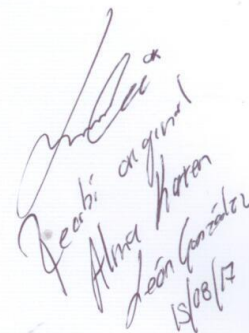 Recibi original
Alma Karen
León González
15/08/17